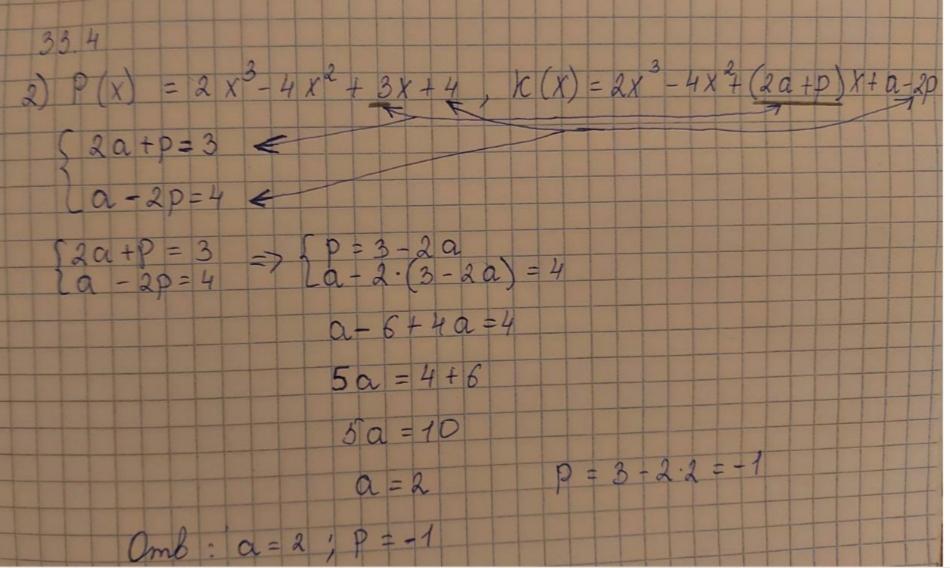 33.4
2) P(x) = 2x³ - 4x² + 3x + 4 , K(x) = 2x³ - 4x² + (2a + p)x + a - 2p
{ 2a + p = 3
{ a - 2p = 4
{ 2a + p = 3 => { p = 3 - 2a
{ a - 2p = 4 { a - 2·(3 - 2a) = 4
a - 6 + 4a = 4
5a = 4 + 6
5a = 10
a = 2 p = 3 - 2·2 = -1
Отв : a = 2 ; p = -1